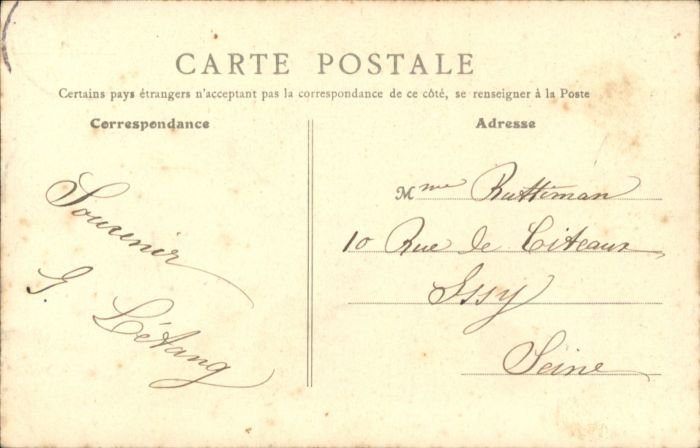 CARTE POSTALE
Certains pays étrangers n'acceptant pas la correspondance de ce côté, se renseigner à la Poste
Correspondance
Souvenir
G. Létang
Adresse
Mme Ruttiman
10 Rue de Citeaux
Issy
Seine